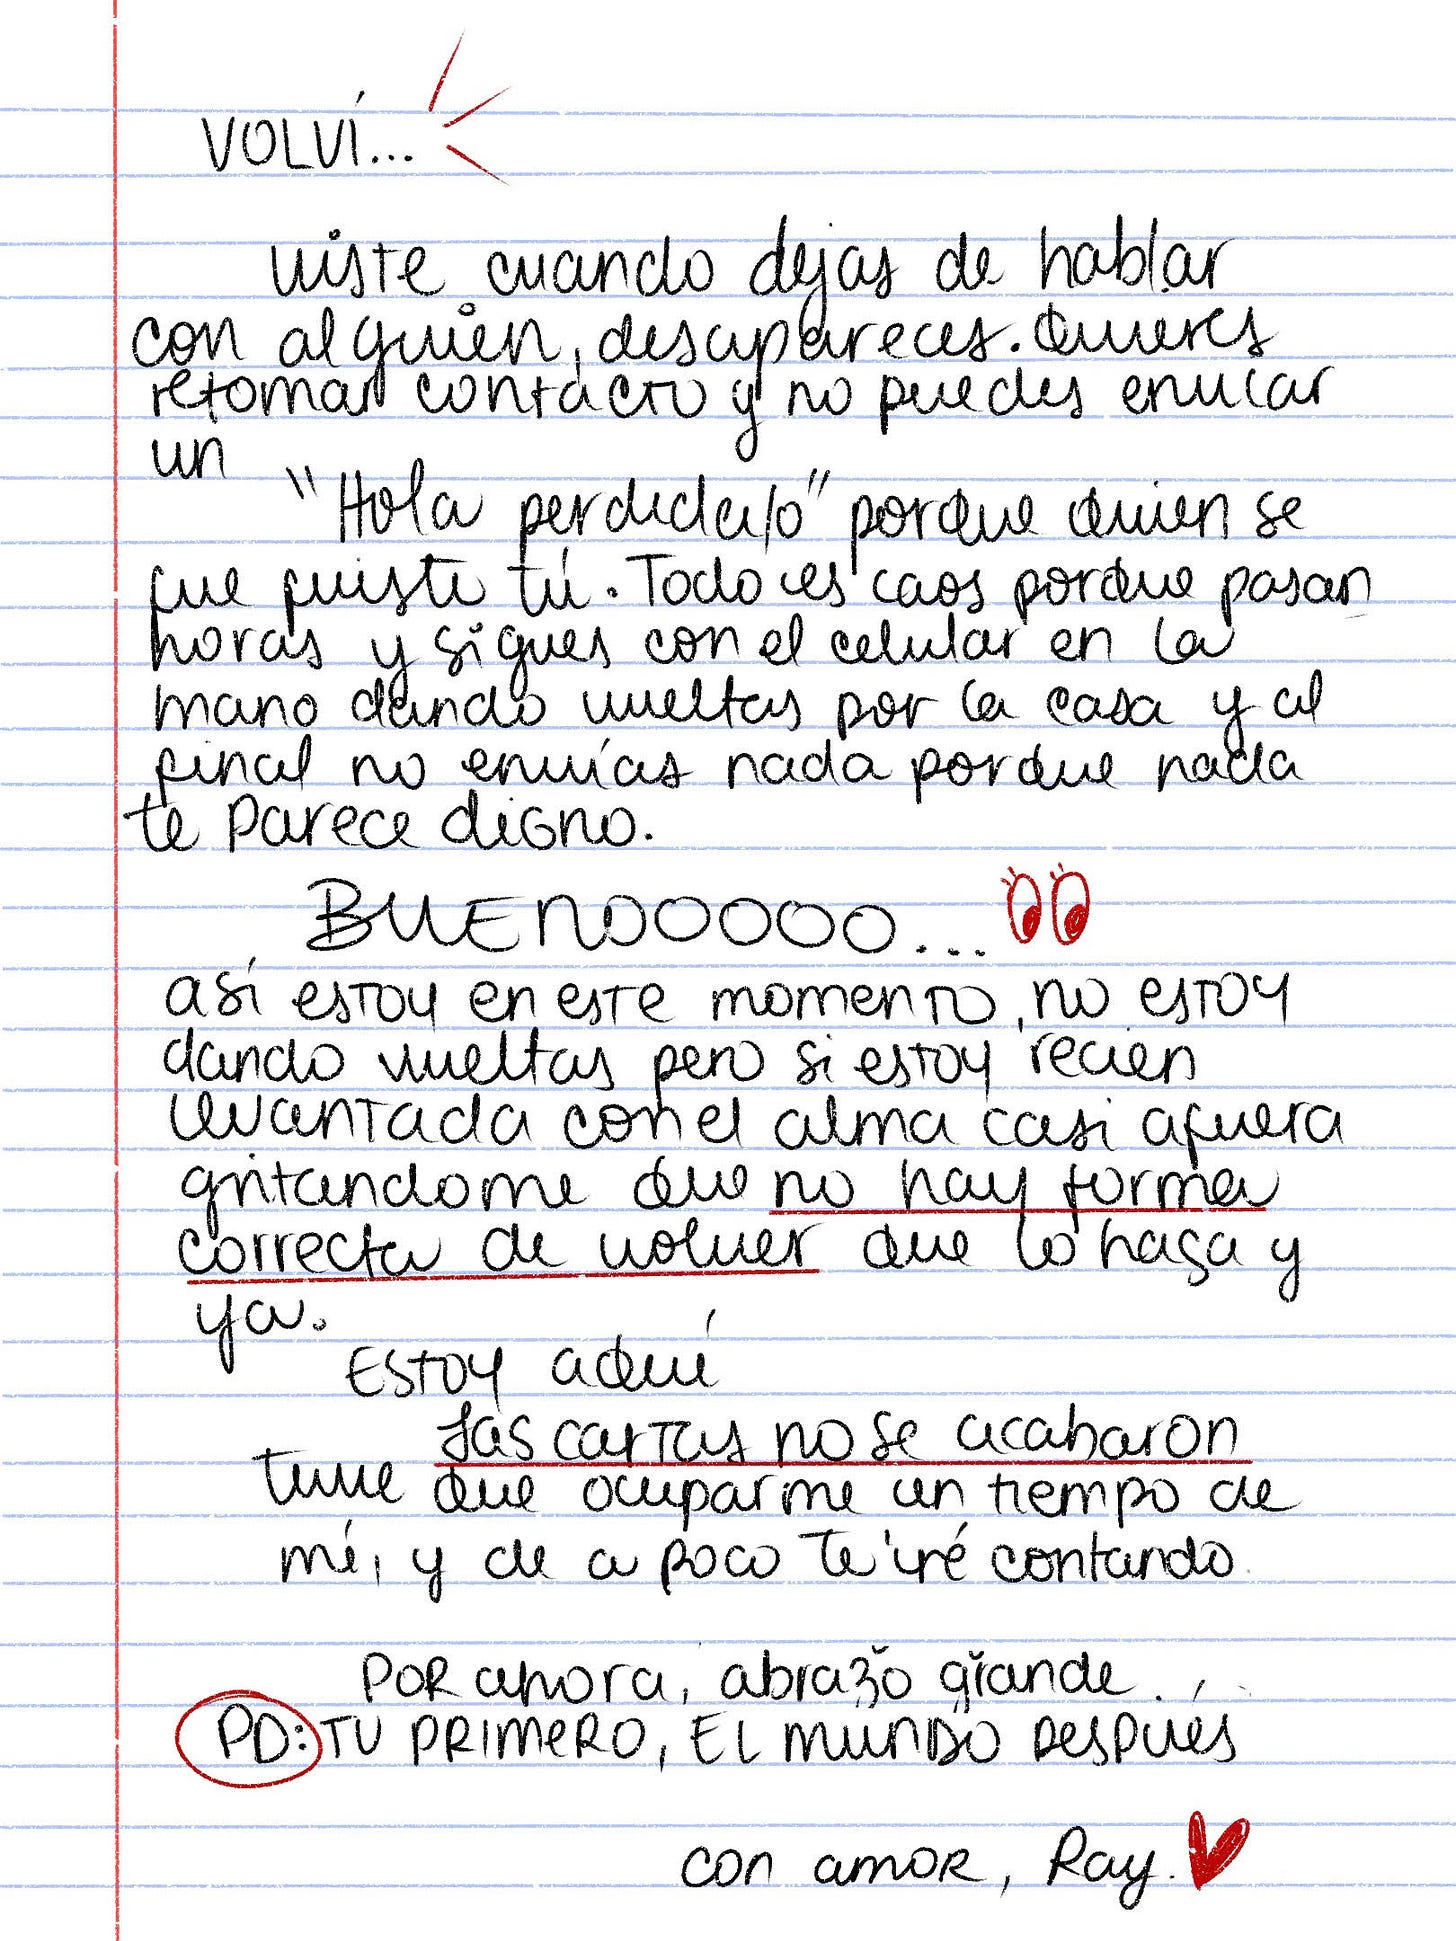 VOLVÍ...
viste cuando dejas de hablar
con alguien, desapareces. Quieres
retomar contacto y no puedes enviar
un
"Hola perdida/o" porque quien se
fue fuiste tú. Todo es caos porque pasan
horas y sigues con el celular en la
mano dando vueltas por la casa y al
final no envías nada porque nada
te parece digno.
BUENOOOOO...
así estoy en este momento, no estoy
dando vueltas pero si estoy recien
levantada con el alma casi afuera
gritandome que no hay forma
correcta de volver que lo haga y
ya.
Estoy aquí
Las cartas no se acabaron
tuve que ocuparme un tiempo de
mí, y de a poco te iré contando
POR ahora, abrazo grande.
PD: TU PRIMERO, EL MUNDO DESPUÉS
con amor, Ray.